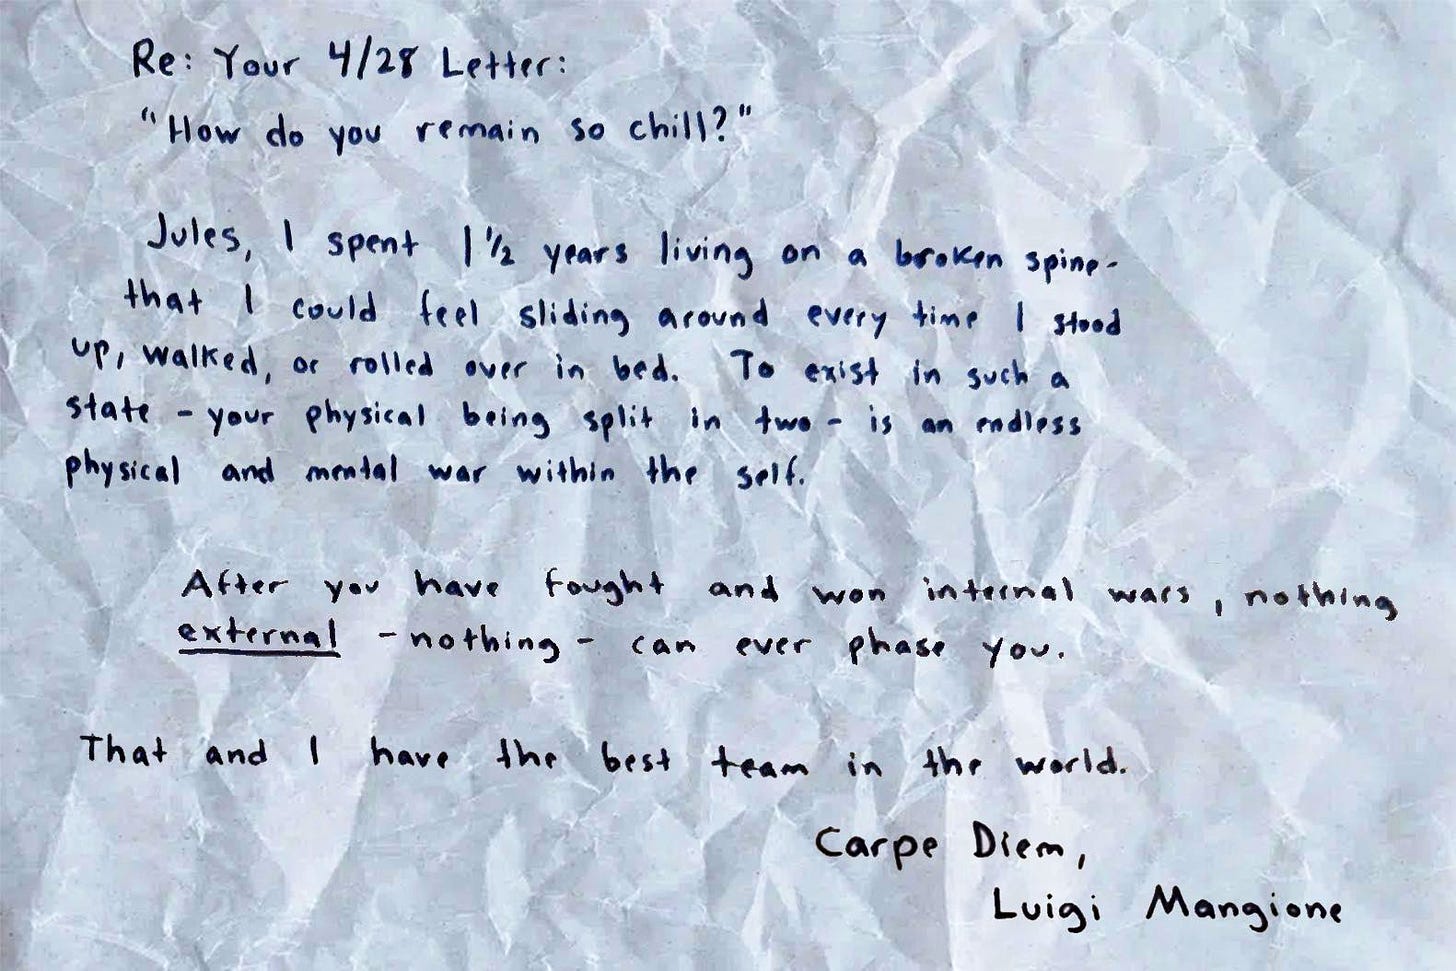 Re: Your 4/28 Letter:
"How do you remain so chill?"
Jules, I spent 1 1/2 years living on a broken spine-
that I could feel sliding around every time I stood
up, walked, or rolled over in bed. To exist in such a
state - your physical being split in two - is an endless
physical and mental war within the self.
After you have fought and won internal wars, nothing
external - nothing - can ever phase you.
That and I have the best team in the world.
Carpe Diem,
Luigi Mangione